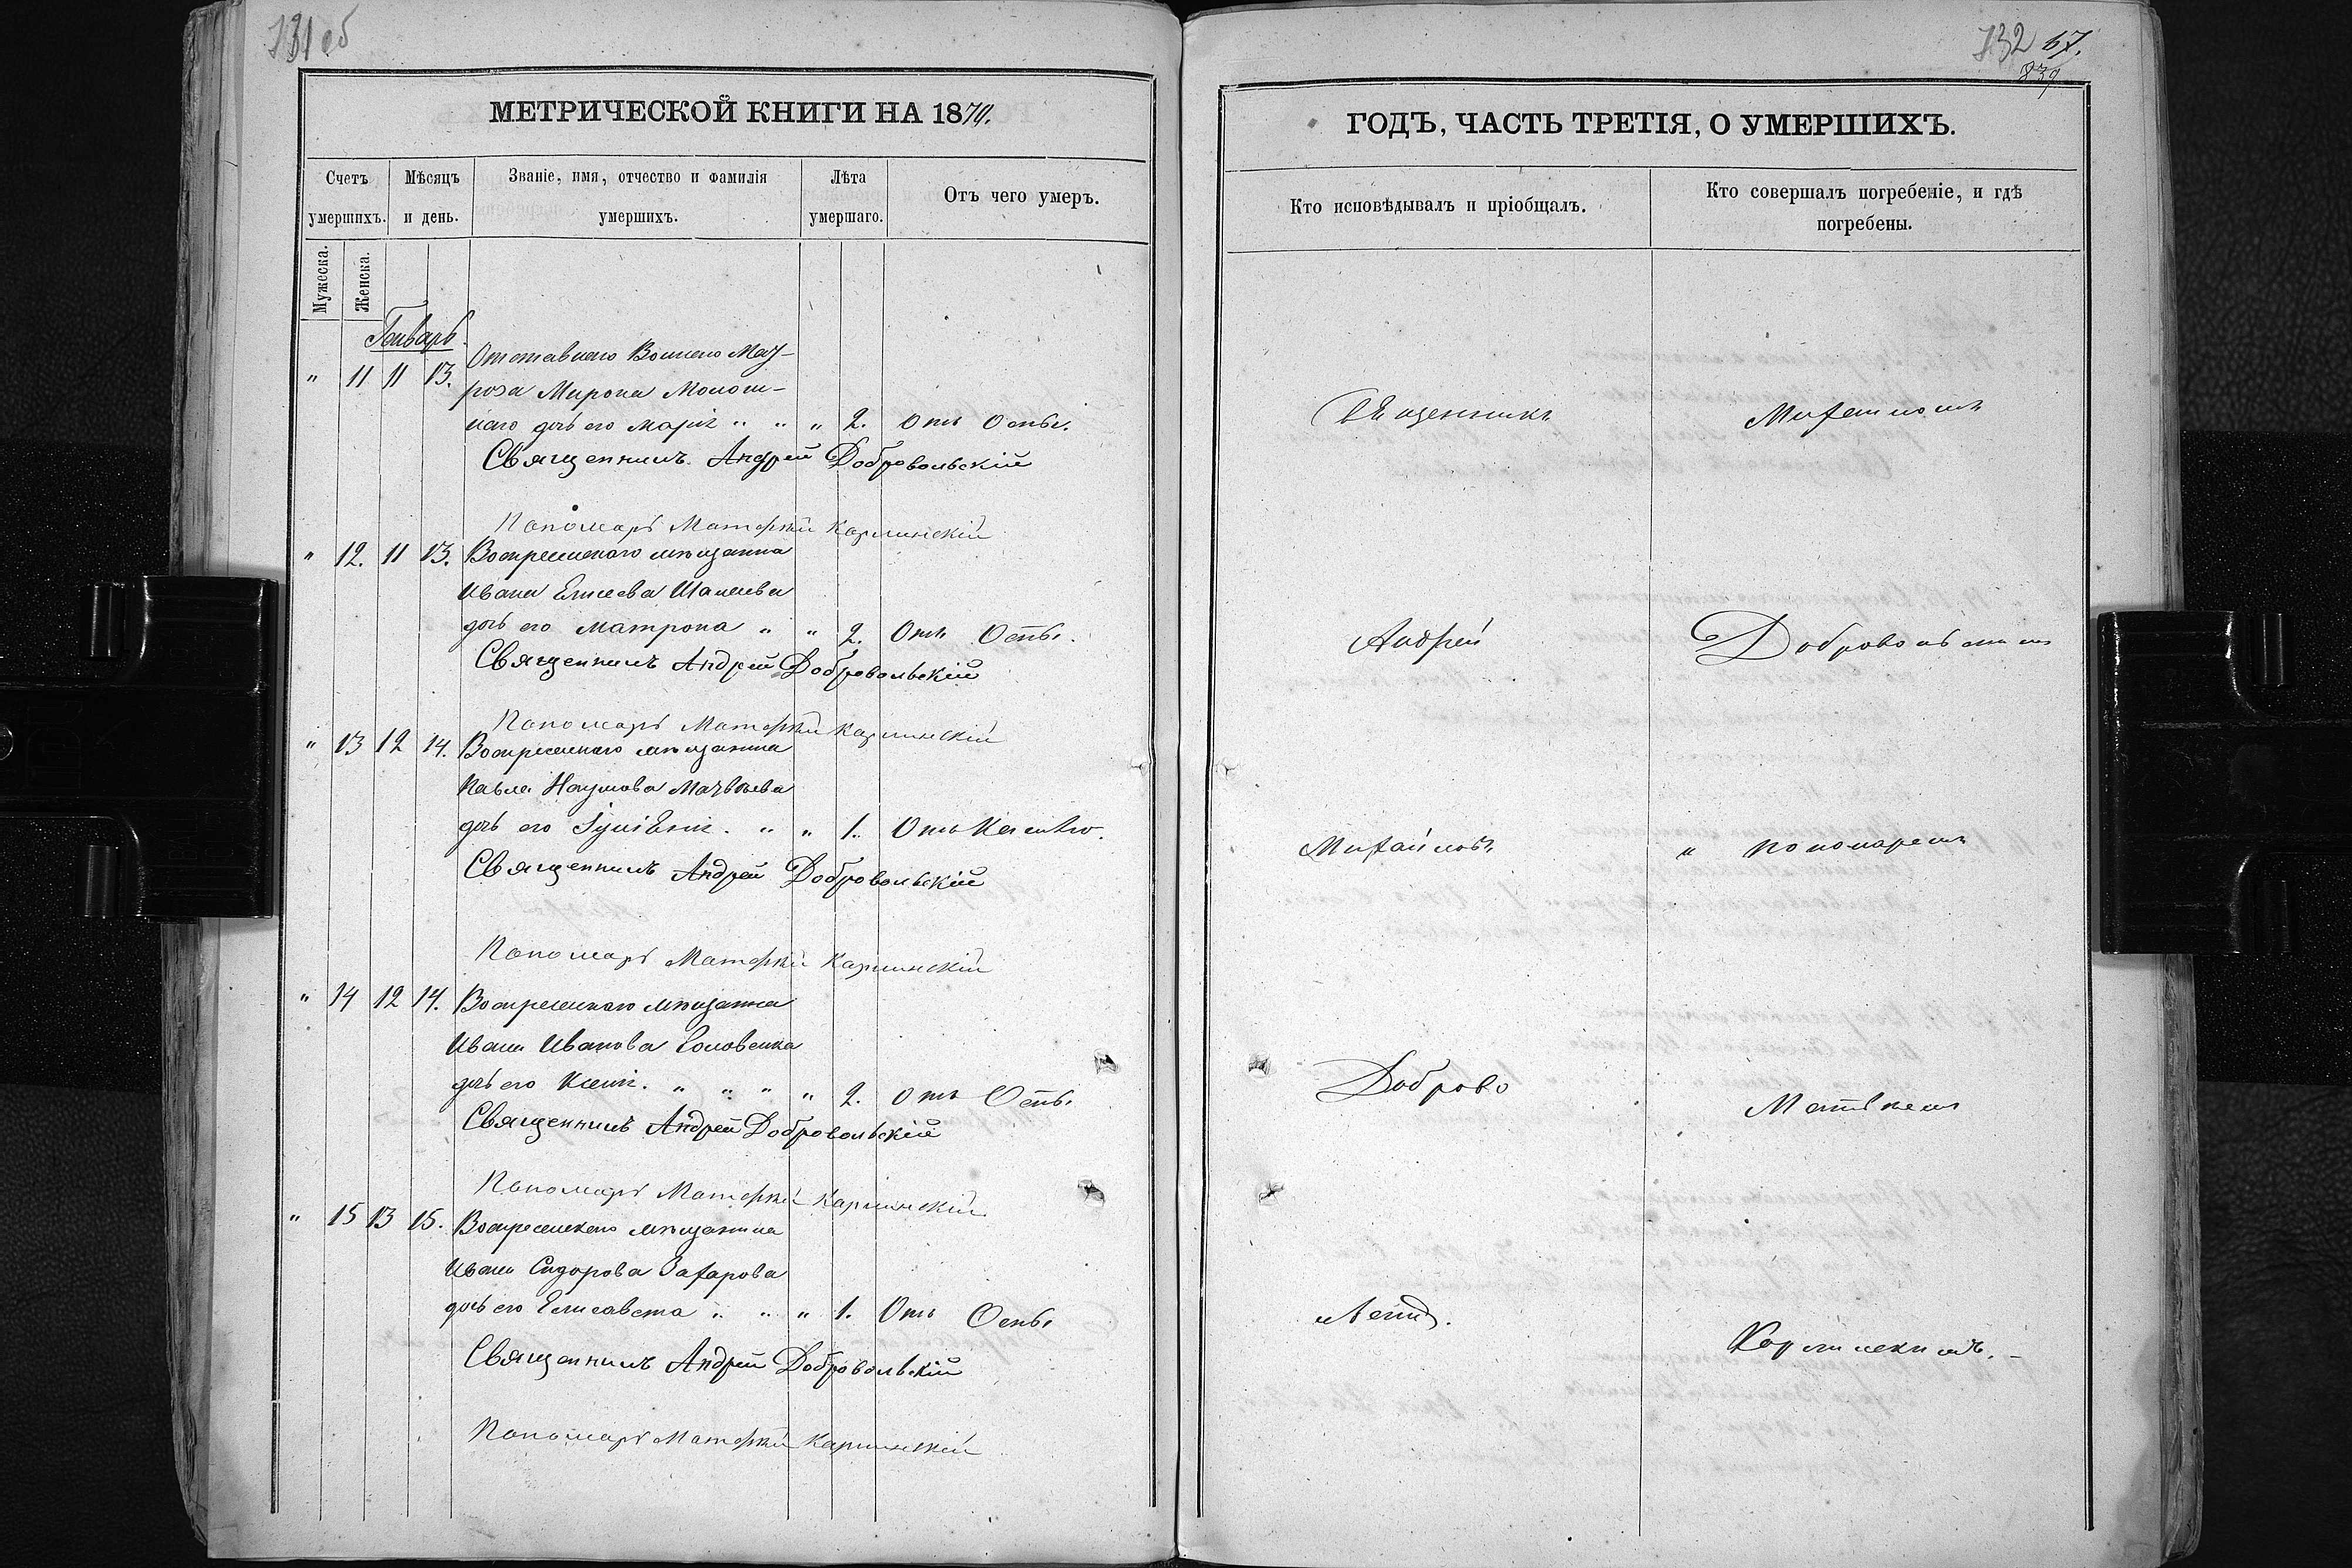 731 об
МЕТРИЧЕСКОЙ КНИГИ НА 1870.
Счетъ умершихъ.
Мѣсяцъ и день.
Званіе, имя, отчество и фамилія умершихъ.
Лѣта умершаго.
Отъ чего умеръ.
Мужеска.
Женска.
Январь.
Отставнаго Военнаго Мат-
" 11 11 13. роза Мирона
наго дочь его Марія " " " 2. Отъ Оспы.
Священникъ Андрей Добровольскій
Пономарь Матфій Карминскій
" 12. 11 13. Воскресенскаго мѣщанина
Ивана Елисеева
дочь его Матрона " " 2. Отъ Оспы.
Священникъ Андрей Добровольскій
Пономарь Матфій Карминскій
" 13 12 14. Воскресенскаго мѣщанина
Павла Наумова Матвѣева
дочь его " " 1. Отъ
Священникъ Андрей Добровольскій
Пономарь Матфій Карминскій
" 14 12 14. Воскресенскаго мѣщанина
Ивана Иванова Головенка
дочь его Ксенія. " " " " 2. Отъ Оспы
Священникъ Андрей Добровольскій
Пономарь Матфій Карминскій
" 15 13 15. Воскресенскаго мѣщанина
Ивана Сидорова Захарова
дочь его Елисавета " " " 1. Отъ Оспы
Священникъ Андрей Добровольскій
Пономарь Матфій Карминскій
732 67.
839
ГОДЪ, ЧАСТЬ ТРЕТІЯ, О УМЕРШИХЪ.
Кто исповѣдывалъ и пріобщалъ.
Кто совершалъ погребеніе, и гдѣ погребены.
Священникъ Михаиломъ
Андрей Добровольскимъ
Михаиловъ и пономаремъ
Доброво
Матѣіемъ
Карминскимъ.